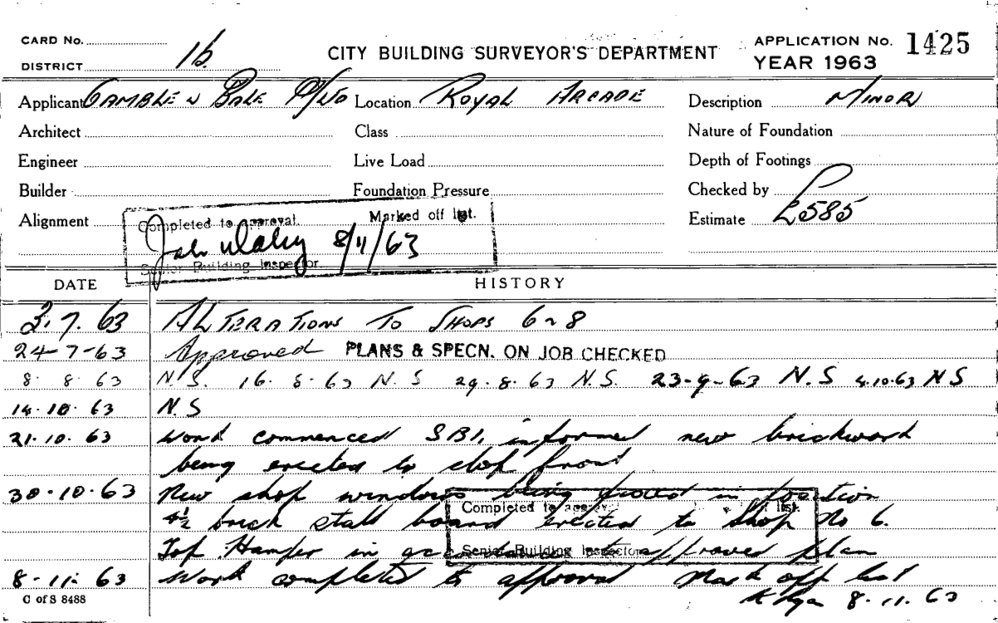 CARD No.
DISTRICT 1b
CITY BUILDING SURVEYOR'S DEPARTMENT
APPLICATION No. 1425
YEAR 1963
Applicant GAMBLE N BALE P/NO Location ROYAL ARCADE Description MINOR
Architect Class Nature of Foundation
Engineer Live Load Depth of Footings
Builder Foundation Pressure Checked by
Alignment Estimate £585
Completed to approval. Marked off list.
8/11/63
Senior Building Inspector
DATE HISTORY
2.7.63 ALTERATIONS TO SHOPS 6 - 8
24-7-63 Approved PLANS & SPECN. ON JOB CHECKED
8. 8. 63 N.S. 16. 8. 63 N.S 29. 8. 63 N.S. 23-9-63 N.S 4.10.63 N S
14.10.63 N.S
21.10.63 Work commenced SBI, informed new brickwork
being erected to shop front
30.10.63 New shop windows being in position
4½ brick stall board erected to shop No 6.
Completed to approval list.
Top Hamper in accordance to approved plan
Senior Building Inspector
8-11-63 Work completed to approval Mark off list
8.11.63
C of S 8488